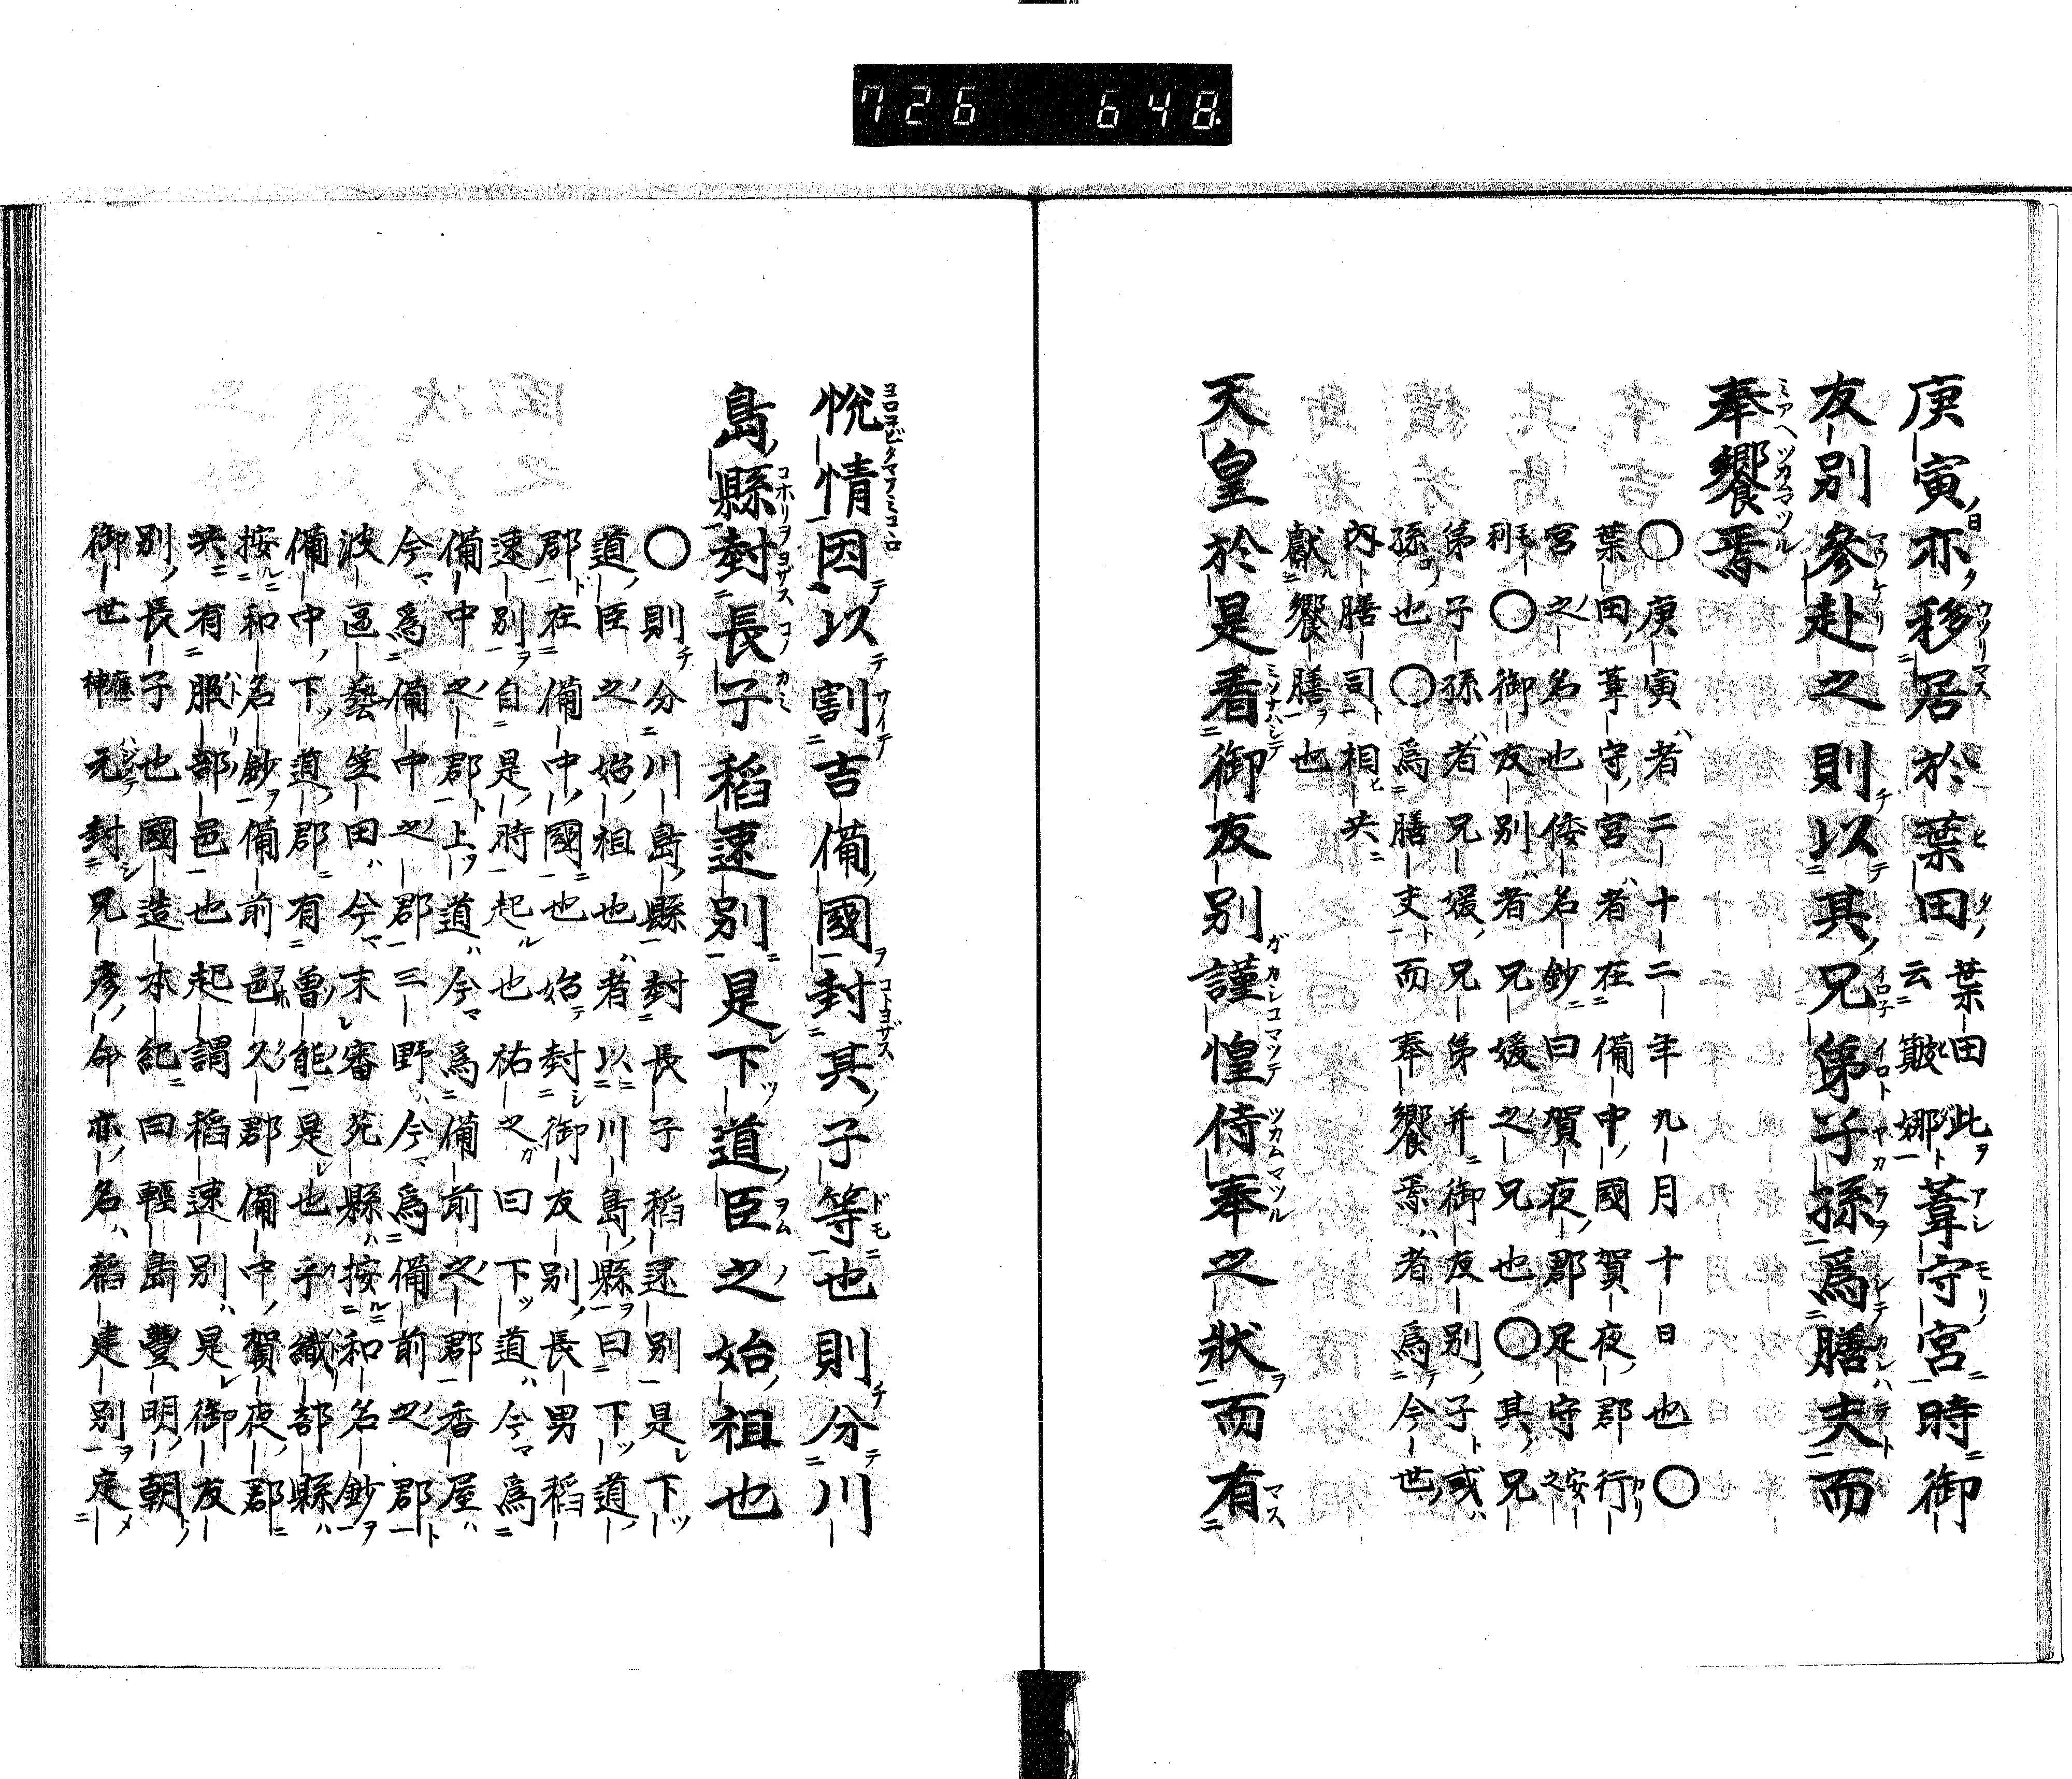 726 648
庚寅亦移居於葉田葉田此云簸娜葦守宮時御
友別參赴之則以其兄弟子孫爲膳夫而
奉饗焉
〇庚寅者二十二年九月十日也〇
葉田葦守宮者在備中國賀夜郡行
宮之名也倭名鈔曰賀夜郡足守安之
利毛〇御友別者兄媛之兄也〇其兄
弟子孫者兄媛兄弟并御友別子或
孫也〇爲膳夫而奉饗焉者爲今世
内膳司相共
獻饗膳也
天皇於是看御友別謹惶侍奉之狀而有
悅情因以割吉備國封其子等也則分川
島縣封長子稻速別是下道臣之始祖也
〇則分川島縣封長子稻速別是下
道臣之始祖也者以川島縣曰下道
郡在備中國也始封御友別長男稻
速別自是時起也祐之曰下道今爲
備中之郡上道今爲備前之郡香屋
今爲備中之郡三野今爲備前之郡
波區藝笠田今末審苑縣按和名鈔
備中下道郡有曾能是也乎織部縣
按和名鈔備前邑久郡備中賀夜郡
共有服部邑也起謂稻速別是御友
別長子也國造本紀曰輕島豐明朝
御世應神元封兄彥命亦名稻建別定